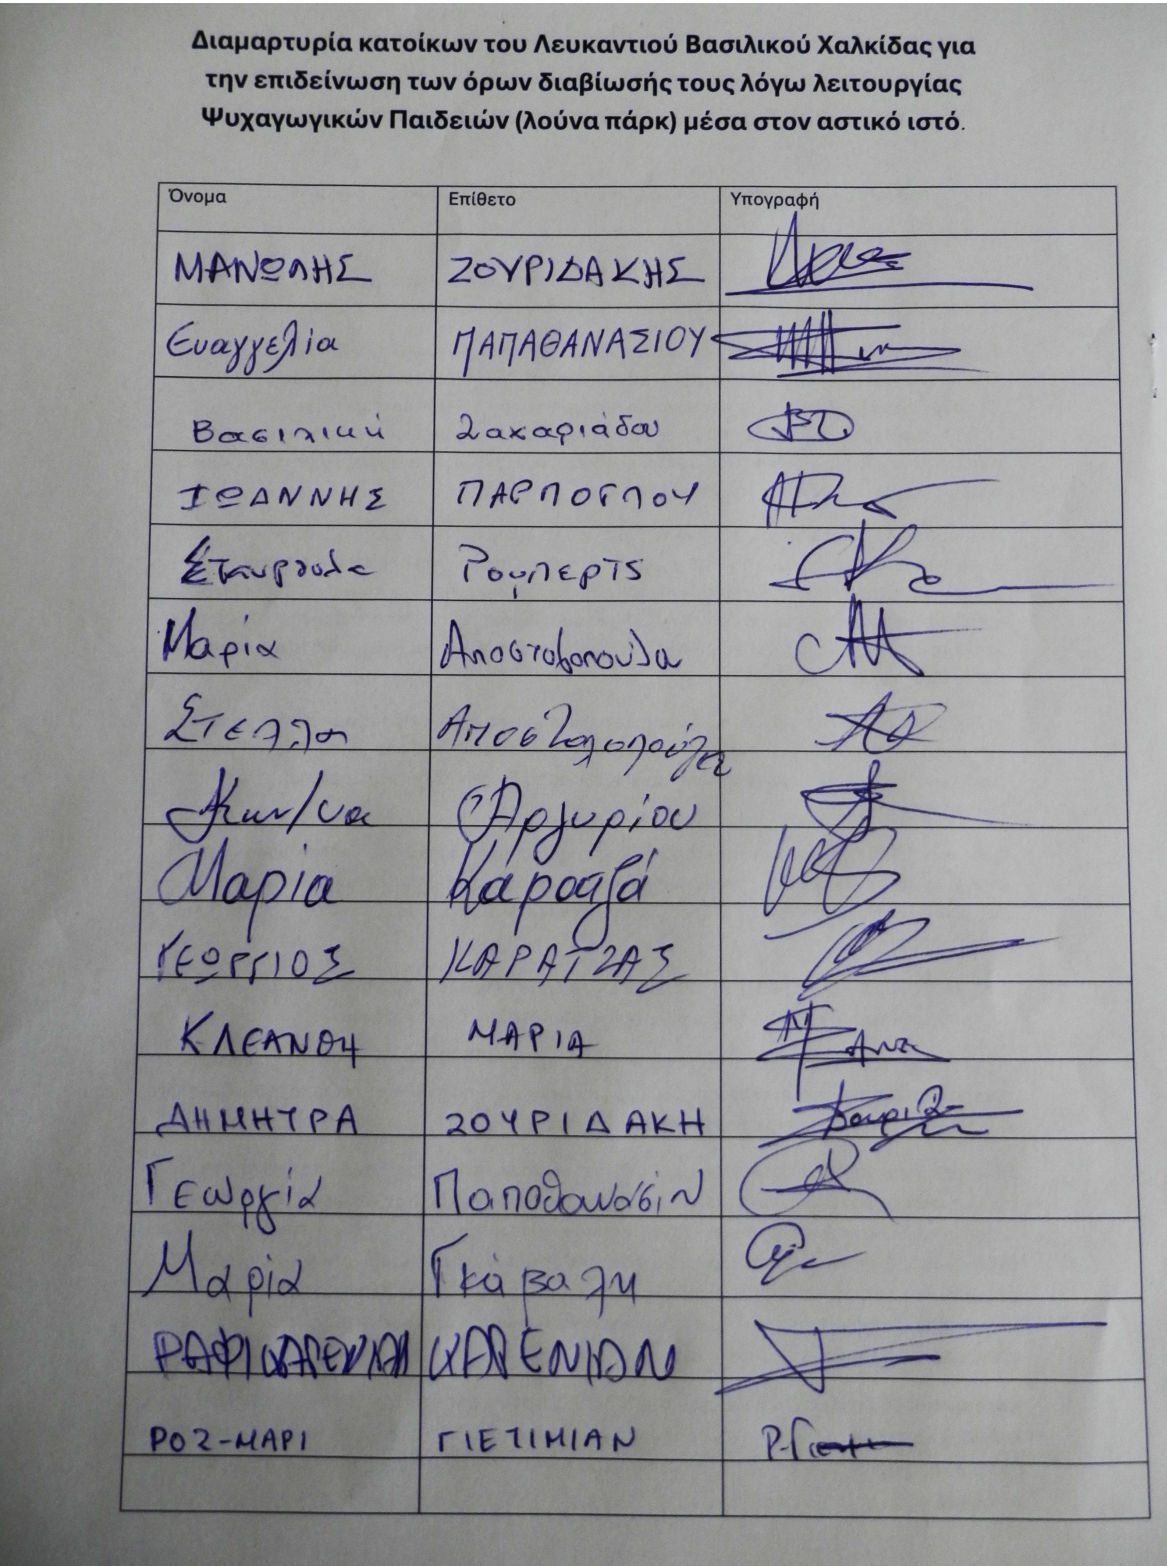 Διαμαρτυρία κατοίκων του Λευκαντιού Βασιλικού Χαλκίδας για
την επιδείνωση των όρων διαβίωσής τους λόγω λειτουργίας
Ψυχαγωγικών Παιδειών (λούνα πάρκ) μέσα στον αστικό ιστό.
Όνομα Επίθετο Υπογραφή
ΜΑΝΩΛΗΣ ΖΟΥΡΙΔΑΚΗΣ
Ευαγγελία ΠΑΠΑΘΑΝΑΣΙΟΥ
Βασιλική Ζαχαριάδου
ΙΩΑΝΝΗΣ
Σταυρούλα Ρουμπερτς
Μαρία Αποστολοπούλου
Στέλλα Αποστολοπούλου
Κων/να Αργυρίου
Μαρία Καρατζά
ΓΕΩΡΓΙΟΣ ΚΑΡΑΤΖΑΣ
ΚΛΕΑΝΘΗ ΜΑΡΙΑ
ΔΗΜΗΤΡΑ ΖΟΥΡΙΔΑΚΗ
Γεωργία
Μαρία Γκάβαλη
ΡΑΦΙ ΧΑΡΕΝΙΑΝ
ΡΟΖ-ΜΑΡΙ ΓΙΕΤΙΜΙΑΝ